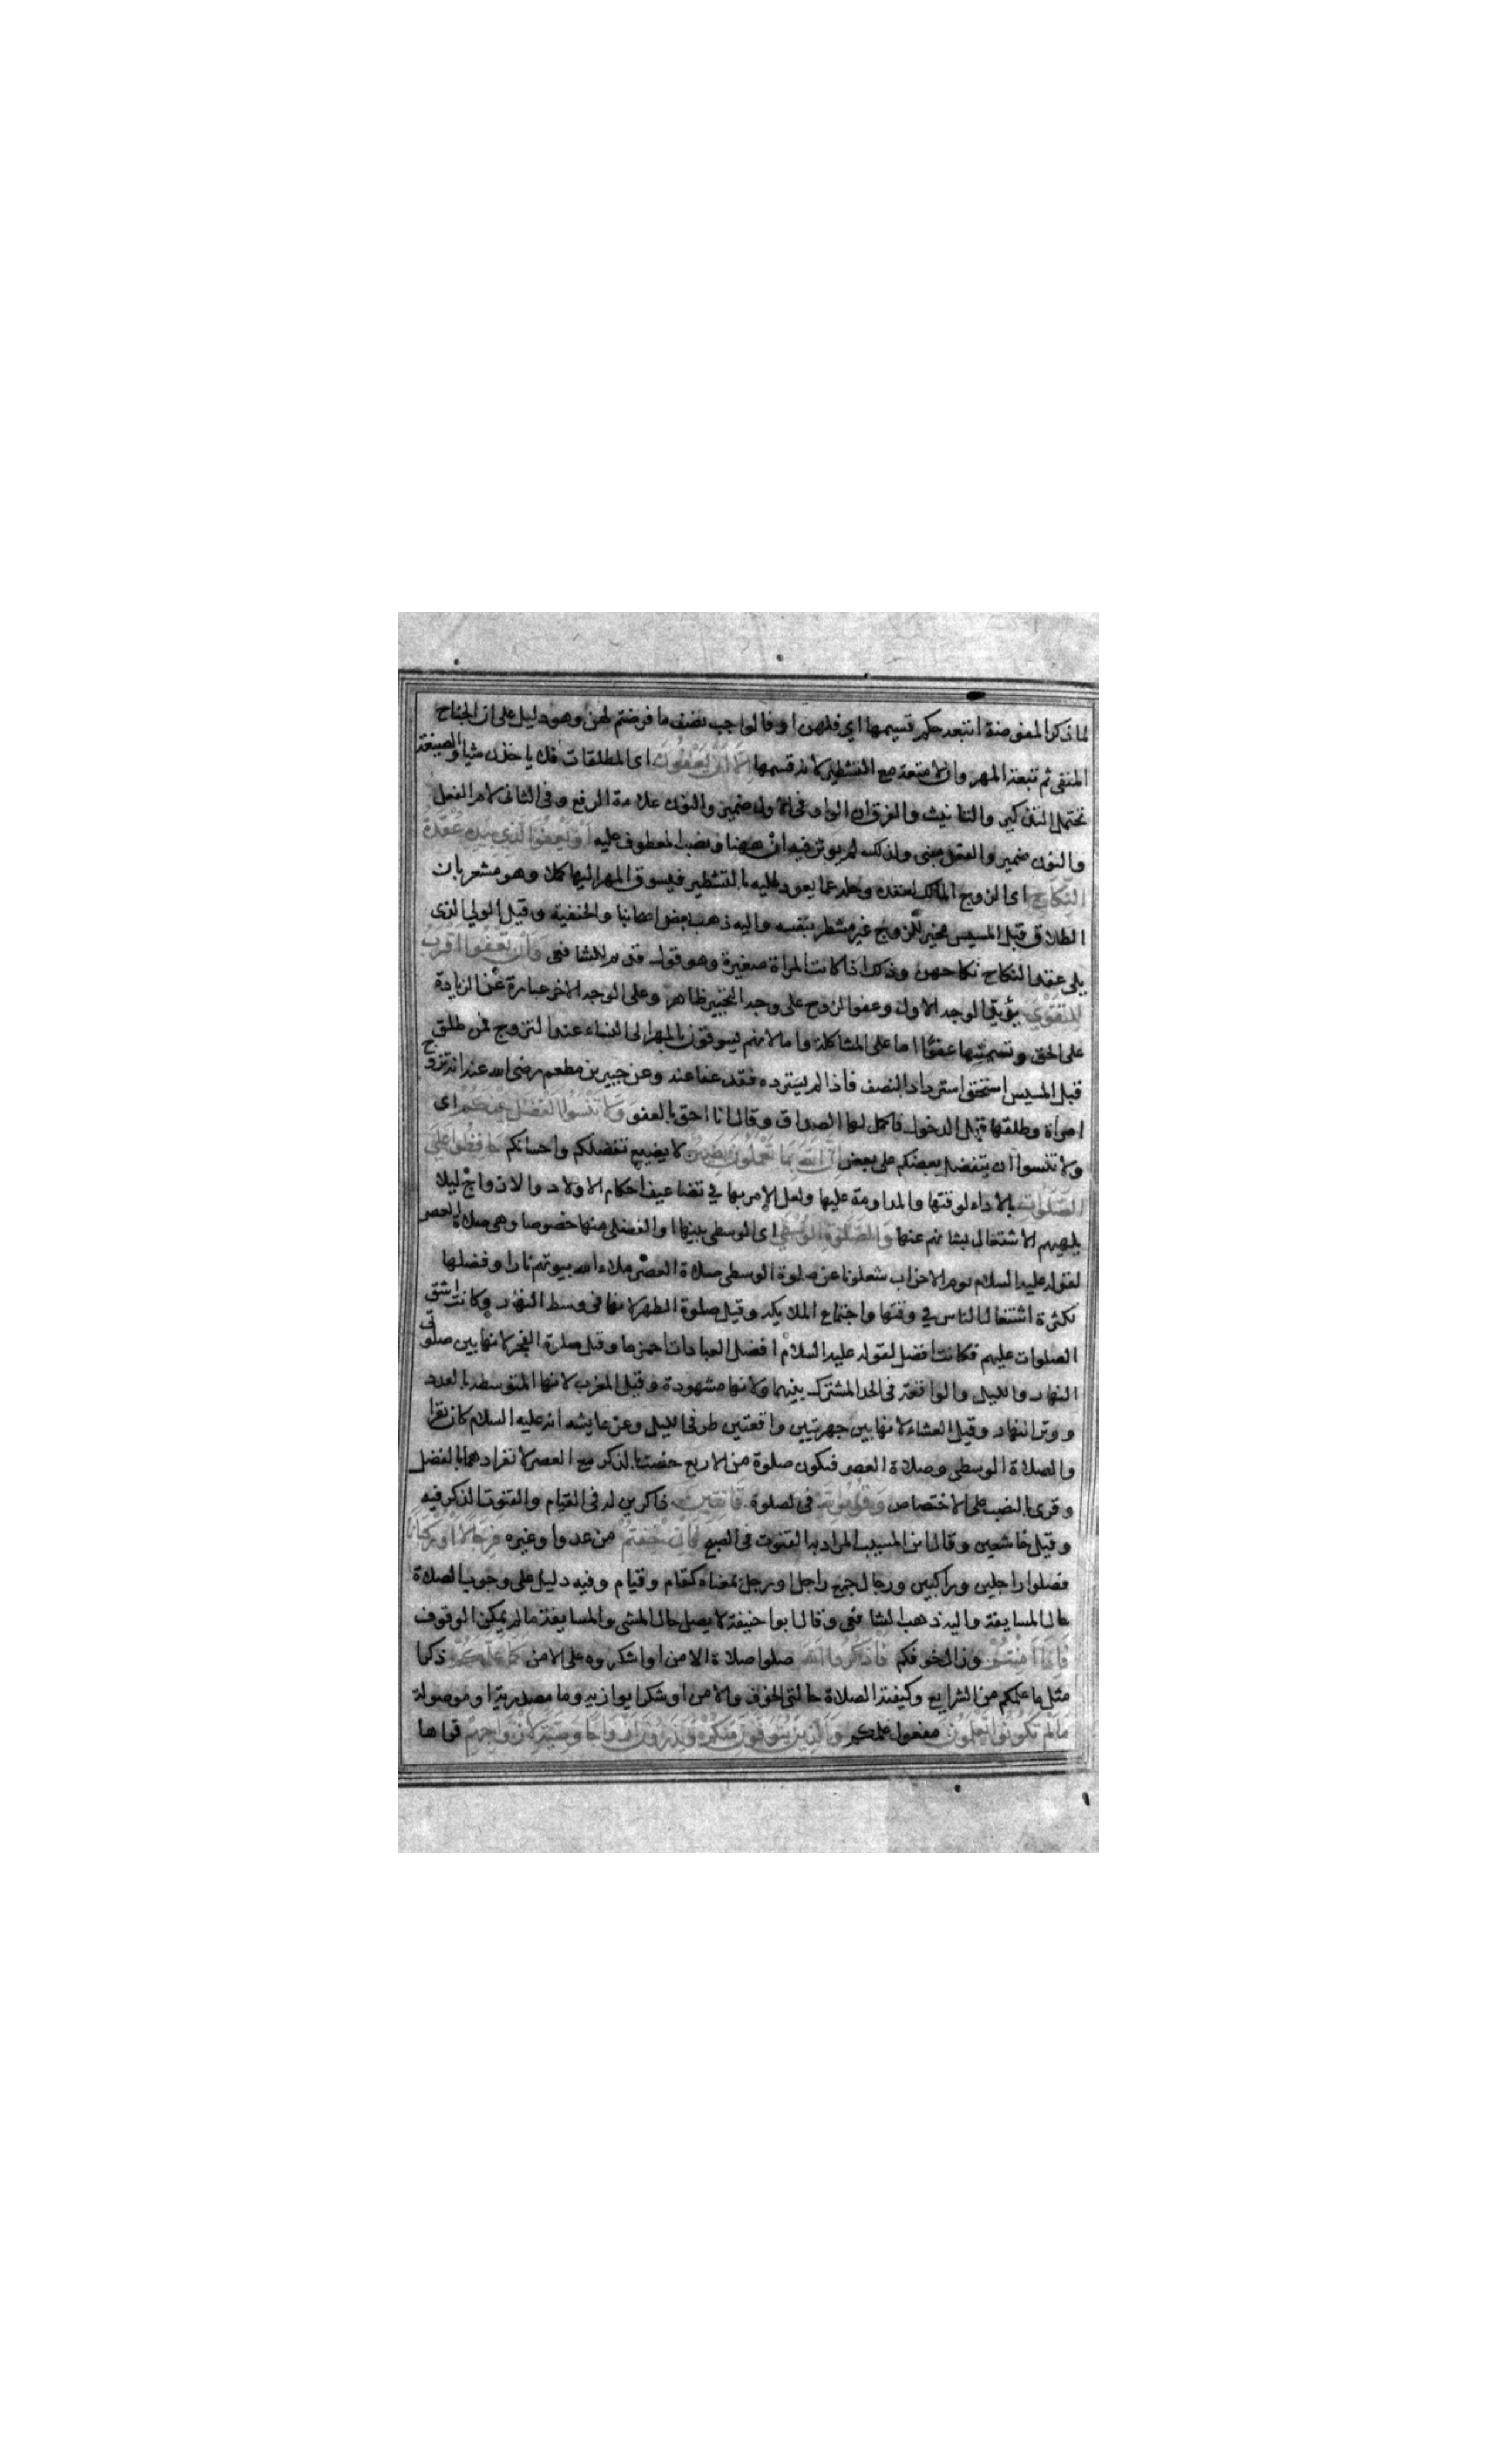 لما ذكر المفوضة اتبعه حكم قسيمها اي فلهن او فالواجب نصف ما فرضتم لهن وهو دليل على ان الجناح
المنفى ثم تبعة المهر وان لا متعة مع التشطير لانه قسيمها الا ان يعفون اى المطلقات فلا ياخذن شيا والصيغة
تحتمل التذكير والتانيث والفرق ان الواو فى الاول ضمير والنون علامة الرفع وفى الثانى لام الفعل
والنون ضمير والفعل مبنى ولذلك لم يوثر فيه ان ههنا ونصب المعطوف عليه أَوْ يَعْفُوَا الَّذِي بِيَدِهِ عُقْدَةُ
النِّكَاحِ اى الزوج المالك لعقده وحله عما يعود اليه بالتشطير فيسوق المهر اليها كملا وهو مشعر بان
الطلاق قبل المسيس مخير للزوج غير مشطر بنفسه واليه ذهب بعض اصحابنا والحنفية وقيل الولي الذى
يلى عقد النكاح نكاحهن وذلك اذا كانت المراة صغيرة وهو قول قديم للشافعى وَأَنْ تَعْفُوا أَقْرَبُ
لِلتَّقْوٰى يؤيد الوجه الاول وعفو الزوج على وجه التخيير ظاهر وعلى الوجه الاخر عبارة عن الزيادة
على الحق وتسميتها عفوًا اما على المشاكلة واما لانهم يسوقون المهر الى النساء عند التزوج فمن طلق
قبل المسيس استحق استرداد النصف فاذا لم يسترده فقد عفا عنه وعن جبير بن مطعم رضى الله عنه انه تزوج
امراة وطلقها قبل الدخول فاكمل لها الصداق وقال انا احق بالعفو وَلَا تَنْسَوُا الْفَضْلَ بَيْنَكُمْ اى
ولا تنسوا ان يتفضل بعضكم على بعض إِنَّ اللَّهَ بِمَا تَعْمَلُونَ بَصِيرٌ لا يضيع تفضلكم واحسانكم حَافِظُوا عَلَى
الصَّلَوَاتِ بالاداء لوقتها والمداومة عليها ولعل الامر بها في تضاعيف احكام الاولاد والازواج ليلا
يلهيهم الاشتغال بشانهم عنها وَالصَّلَوةِ الْوُسْطَى اى الوسطى بينها او الفضلى منها خصوصا وهى صلاة العصر
لقوله عليه السلام يوم الاحزاب شغلونا عن صلوة الوسطى صلاة العصر ملاء الله بيوتهم نارا وفضلها
لكثرة اشتغال الناس في وقتها واجتماع الملايكة وقيل صلوة الظهر لانها فى وسط النهار وكانت اشق
الصلوات عليهم فكانت افضل لقوله عليه السلام افضل العبادات احمزها وقيل صلوة الفجر لانها بين صلوتى
النهار والليل والواقعة فى الحد المشترك بينهما ولانها مشهودة وقيل المغرب لانها المتوسطة بالعدد
ووتر النهار وقيل العشاء لانها بين جهريتين واقعتين طرفى الليل وعن عايشه انه عليه السلام كان يقرا
والصلاة الوسطى وصلاة العصر فيكون صلوة من الاربع خصت بالذكر مع العصر لانفرادهما بالفضل
وقرى بالنصب على الاختصاص وَقُومُوا لِلَّهِ فى الصلوة قَانِتِينَ ذاكرين له فى القيام والقنوت الذكر فيه
وقيل خاشعين وقال ابن المسيب المراد به القنوت فى الصبح فَإِنْ خِفْتُمْ من عدو او غيره فَرِجَالًا أَوْ رُكْبَانًا
فصلوا راجلين وراكبين ورجال جمع راجل او رجل بمعناه كقام وقيام وفيه دليل على وجوب الصلاة
حال المسايفة واليه ذهب الشافعى وقال ابو حنيفة لا يصل حال المشى والمسايفة ما لم يمكن الوقوف
فَإِذَا أَمِنْتُمْ وزال خوفكم فَاذْكُرُوا اللَّهَ صلوا صلاة الامن او اشكروه على الامن كَمَا عَلَّمَكُمْ ذكرا
مثل ما علمكم من الشرايع وكيفية الصلاة حالتى الخوف والامن او شكرا يوازيه وما مصدرية او موصولة
مَا لَمْ تَكُونُوا تَعْلَمُونَ مفعول علمكم وَالَّذِينَ يُتَوَفَّوْنَ مِنْكُمْ وَيَذَرُونَ أَزْوَاجًا وَصِيَّةً لِأَزْوَاجِهِمْ قراها